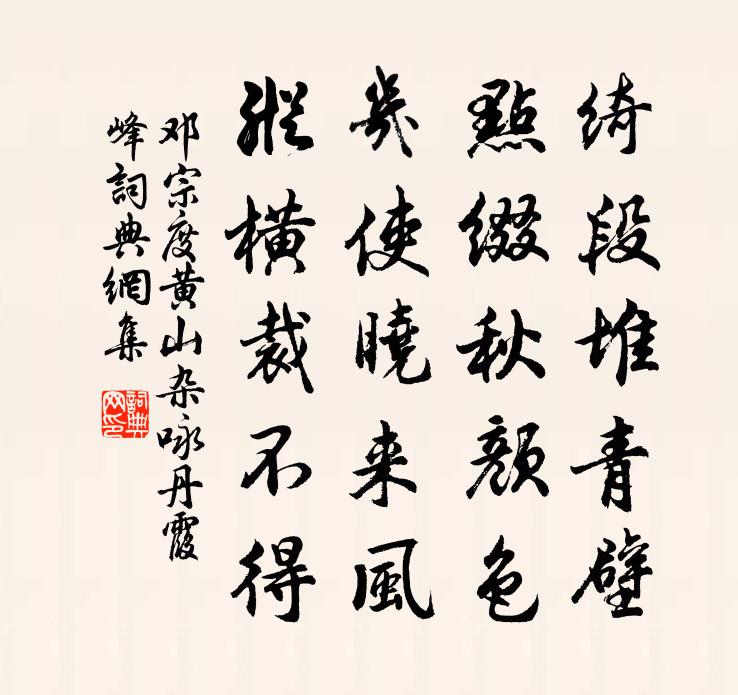 绮段堆青壁
點缀秋颜色
幾使曉来風
縱横裁不得
邓宗度黄山杂咏丹霞
峰詞典網集
詞典
网印